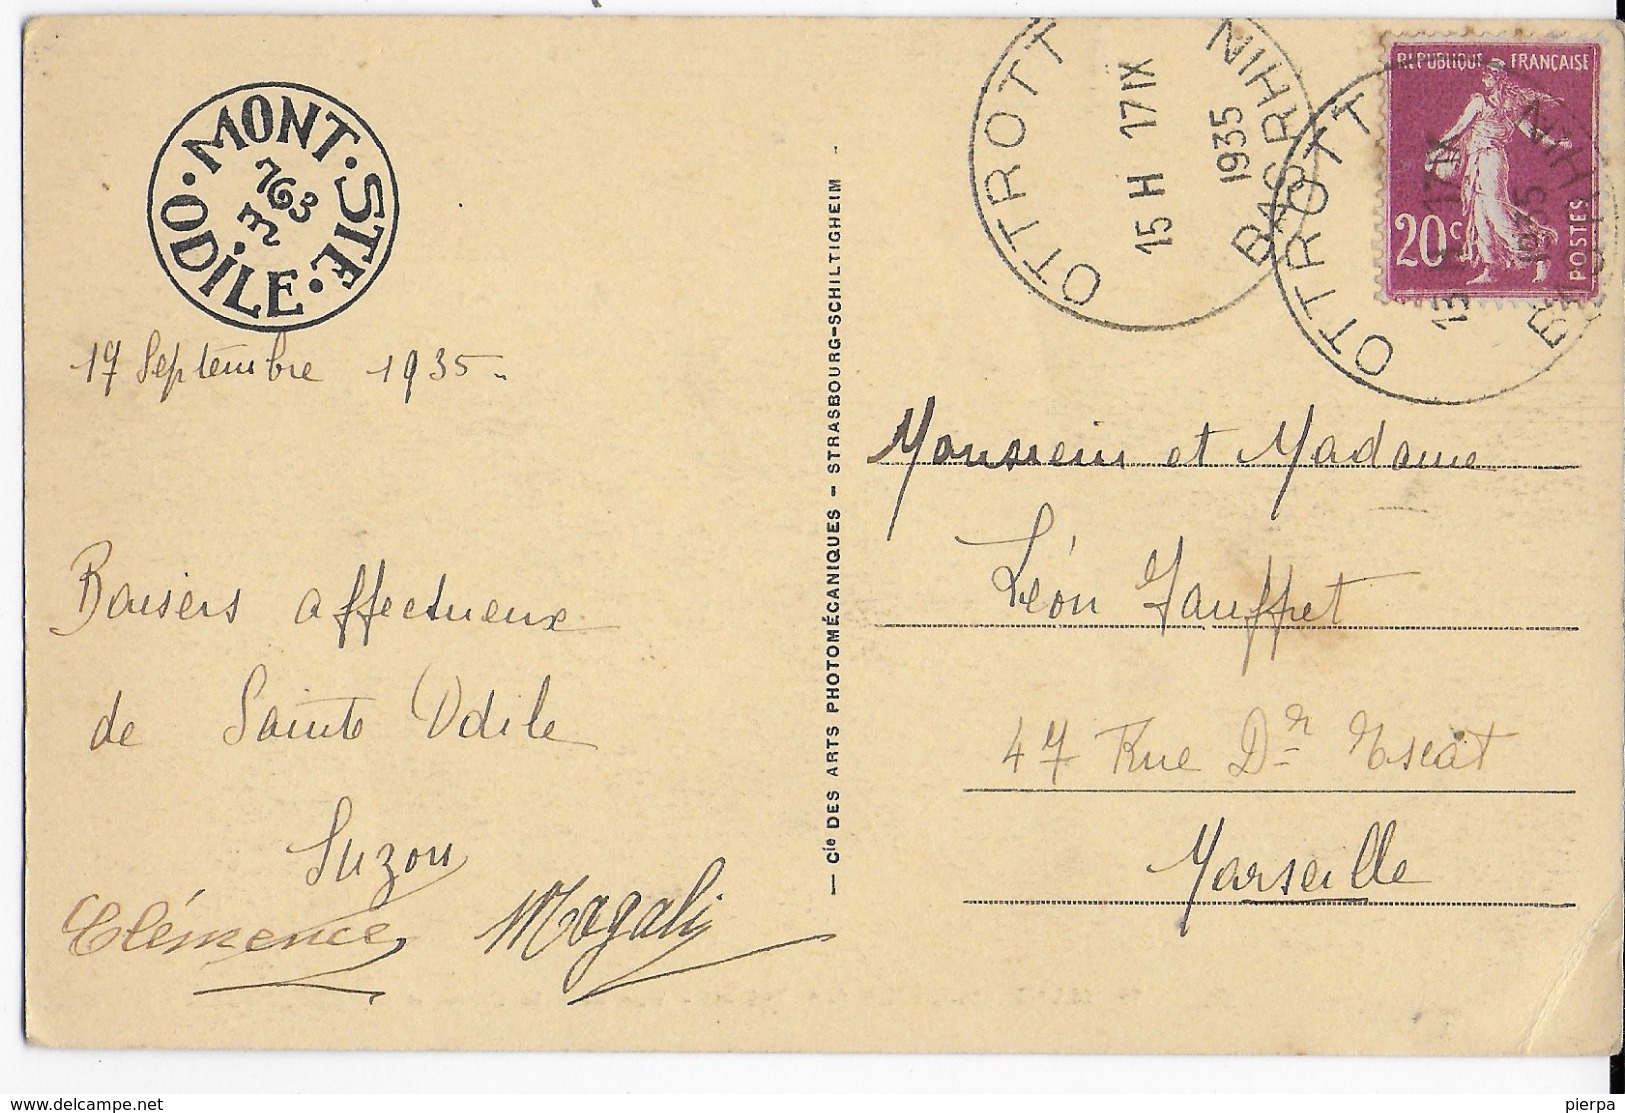 MONT · STE · ODILE ·
763 m
17 Septembre 1935
Baisers affectueux
de Sainte Odile
Suzou
Clémence
Magali
— Cie DES ARTS PHOTOMÉCANIQUES – STRASBOURG-SCHILTIGHEIM –
OTTROTT
15 H 17 IX
1935
BAS RHIN
OTTROTT
17 IX
1935
RÉPUBLIQUE FRANÇAISE
20c
POSTES
Monsieur et Madame
Léon Gauffret
47 Rue Dr Escat
Marseille
www.delcampe.net
pierpa